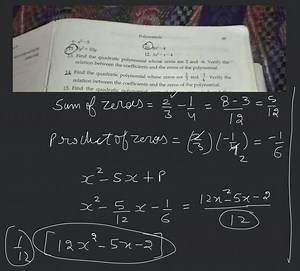 Polynomials
13. Find the quadratic polynomial whose zeros are 2 and -6. Verify the
relation between the coefficients and the zeros of the polynomial.
14. Find the quadratic polynomial whose zeros are 2/3 and -1/4. Verify the
relation between the coefficients and the zeros of the polynomial.
15. Find the quadratic
Sum of zeros = 2/3 - 1/4 = 8-3/12 = 5/12
Product of zeros = (2/3)(-1/4) = -1/6
x² - Sx + P
x² - 5/12 x - 1/6 = 12x² - 5x - 2/12
(1/12) [12x² - 5x - 2]